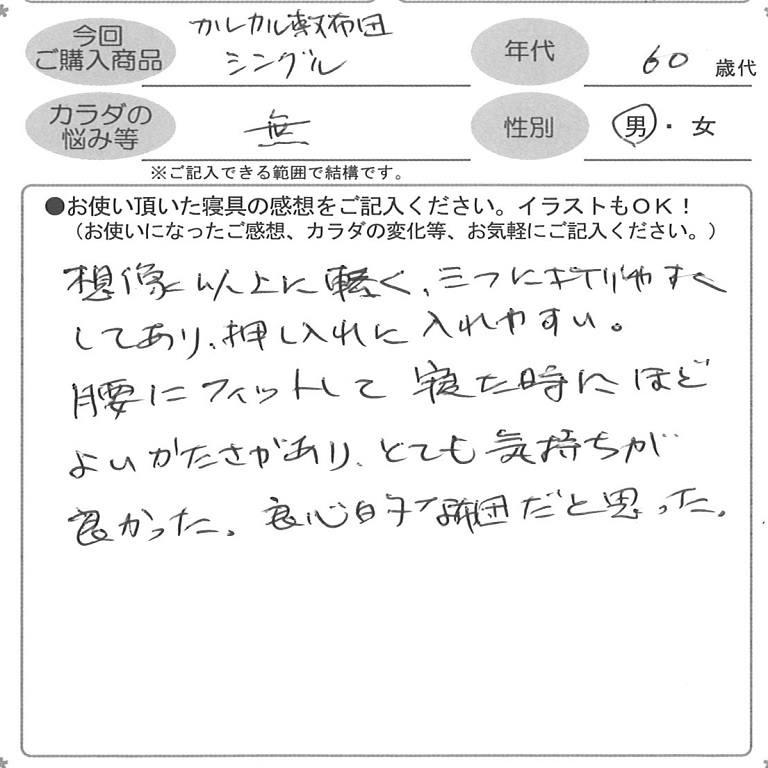 今回
ご購入商品
カルカル敷布団
シングル
年代
60 歳代
カラダの
悩み等
無
性別
男・女
※ご記入できる範囲で結構です。
●お使い頂いた寝具の感想をご記入ください。イラストもOK!
(お使いになったご感想、カラダの変化等、お気軽にご記入ください。)
想像以上に軽く、三つに折りやすく
してあり、押し入れに入れやすい。
腰にフィットして寝た時にほど
よいかたさがあり、とても気持ちが
良かった。良心的な布団だと思った。